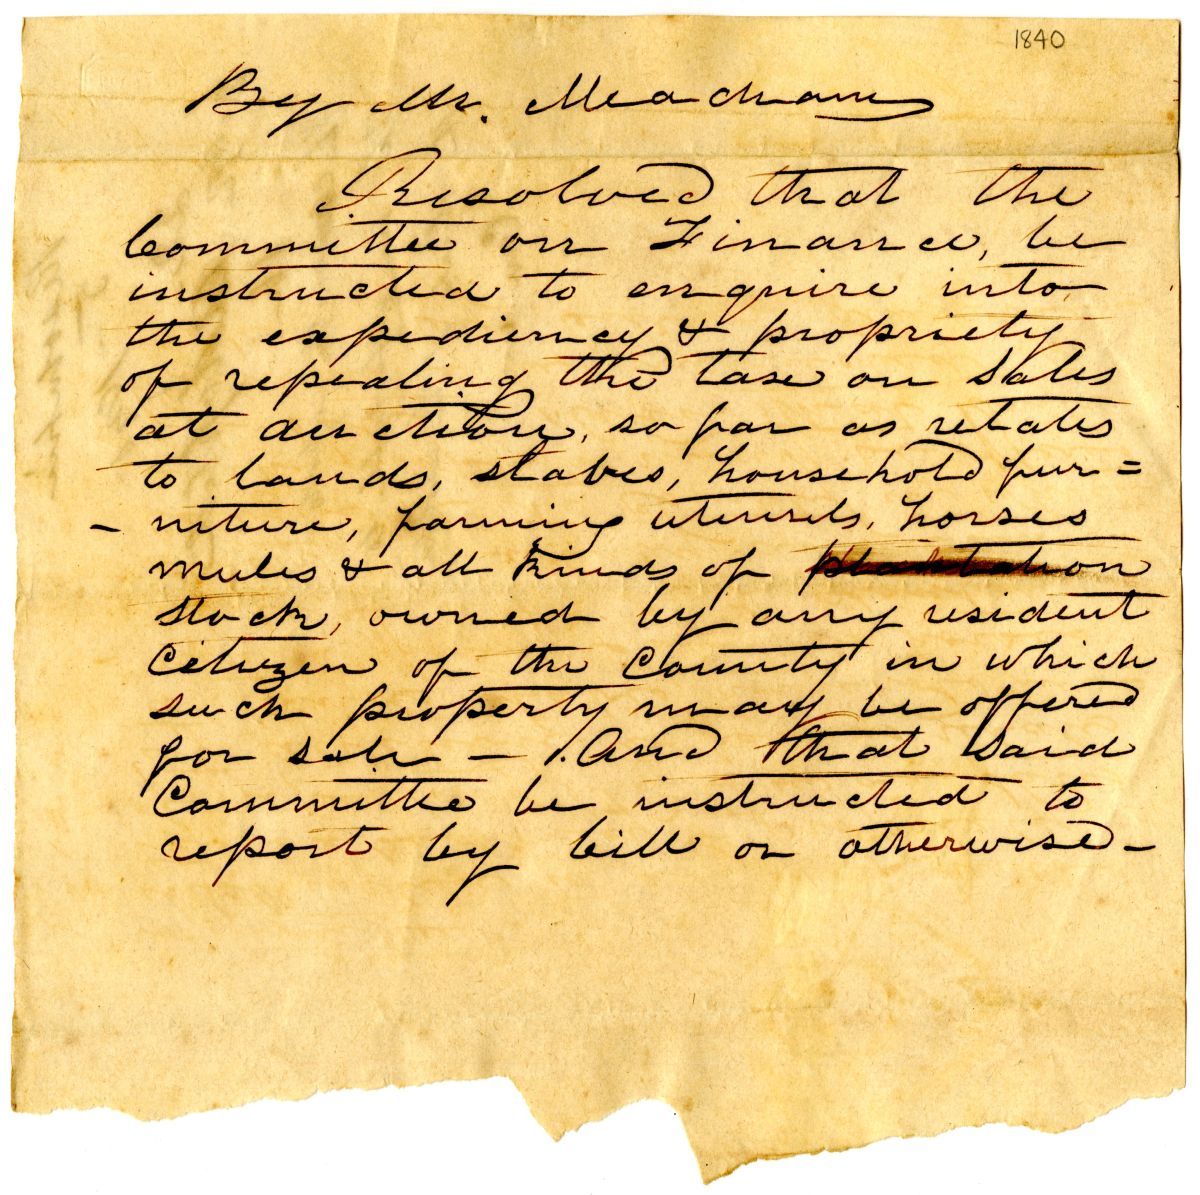 1840
By Mr. Meacham
Resolved that the
Committee on Finance, be
instructed to enquire into
the expediency & propriety
of repealing the tax on Sales
at auction, so far as relates
to lands, slaves, household fur=
- niture, farming utensils, horses
mules & all kinds of plantation
stock, owned by any resident
Citizen of the County in which
such property may be offered
for sale - . And that said
Committee be instructed to
report by bill or otherwise -